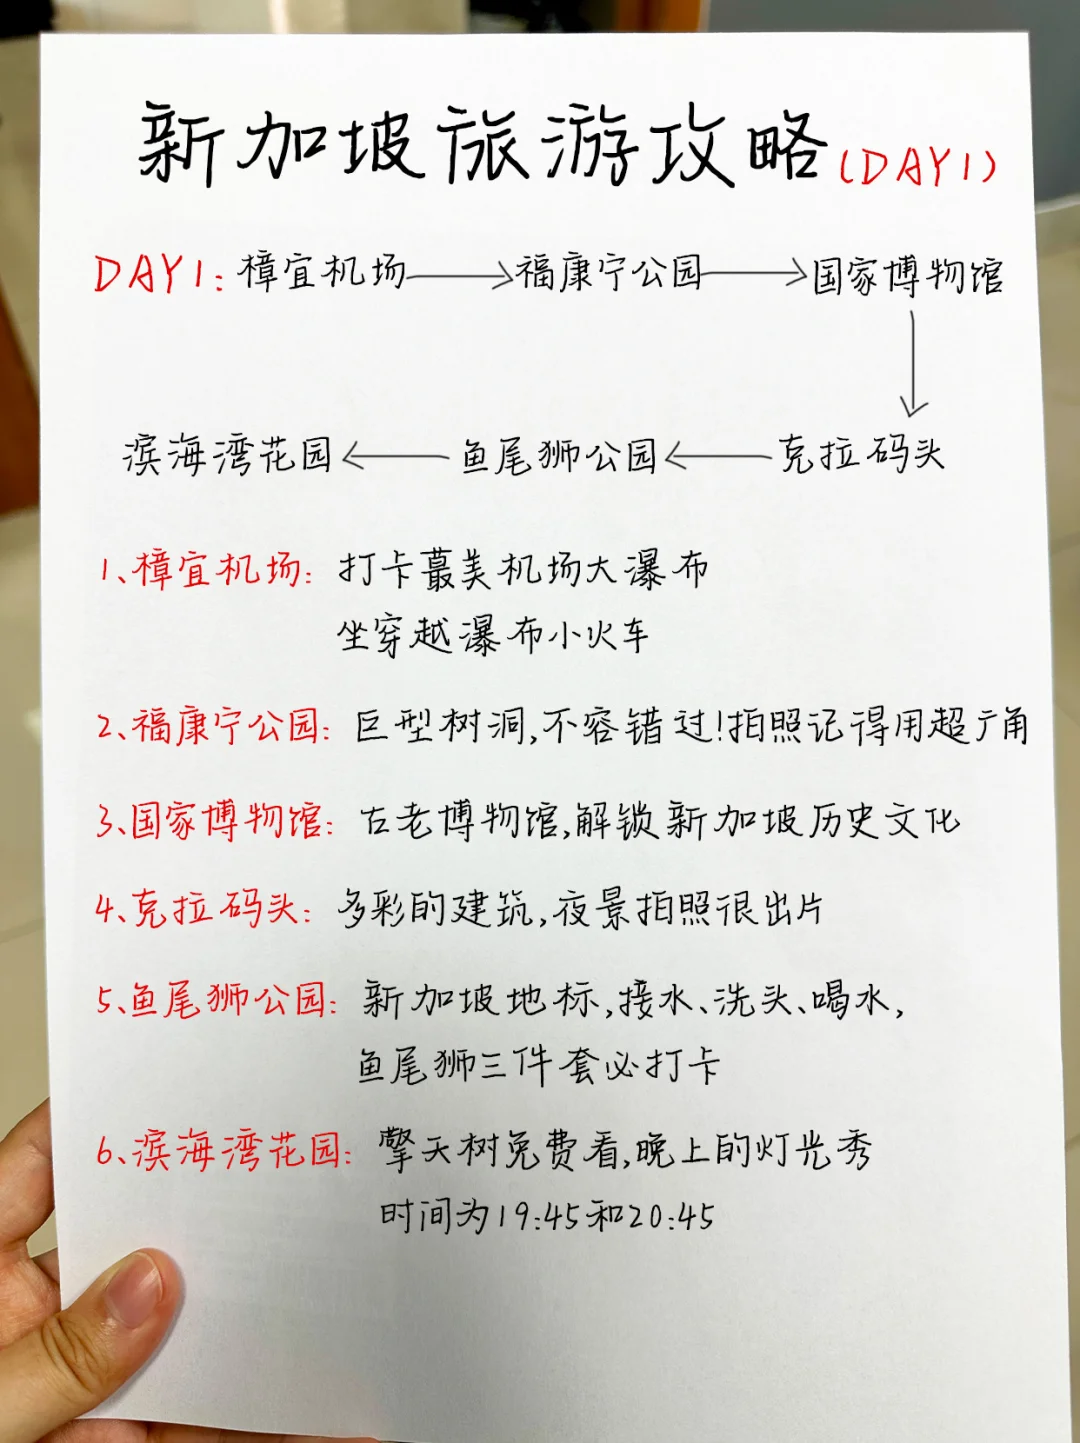 新加坡旅游攻略(DAY1)
DAY1:樟宜机场→福康宁公园→国家博物馆
↓
滨海湾花园←鱼尾狮公园←克拉码头
1、樟宜机场:打卡蕞美机场大瀑布
坐穿越瀑布小火车
2、福康宁公园:巨型树洞,不容错过!拍照记得用超广角
3、国家博物馆:古老博物馆,解锁新加坡历史文化
4、克拉码头:多彩的建筑,夜景拍照很出片
5、鱼尾狮公园:新加坡地标,接水、洗头、喝水,
鱼尾狮三件套必打卡
6、滨海湾花园:擎天树免费看,晚上的灯光秀
时间为19:45和20:45